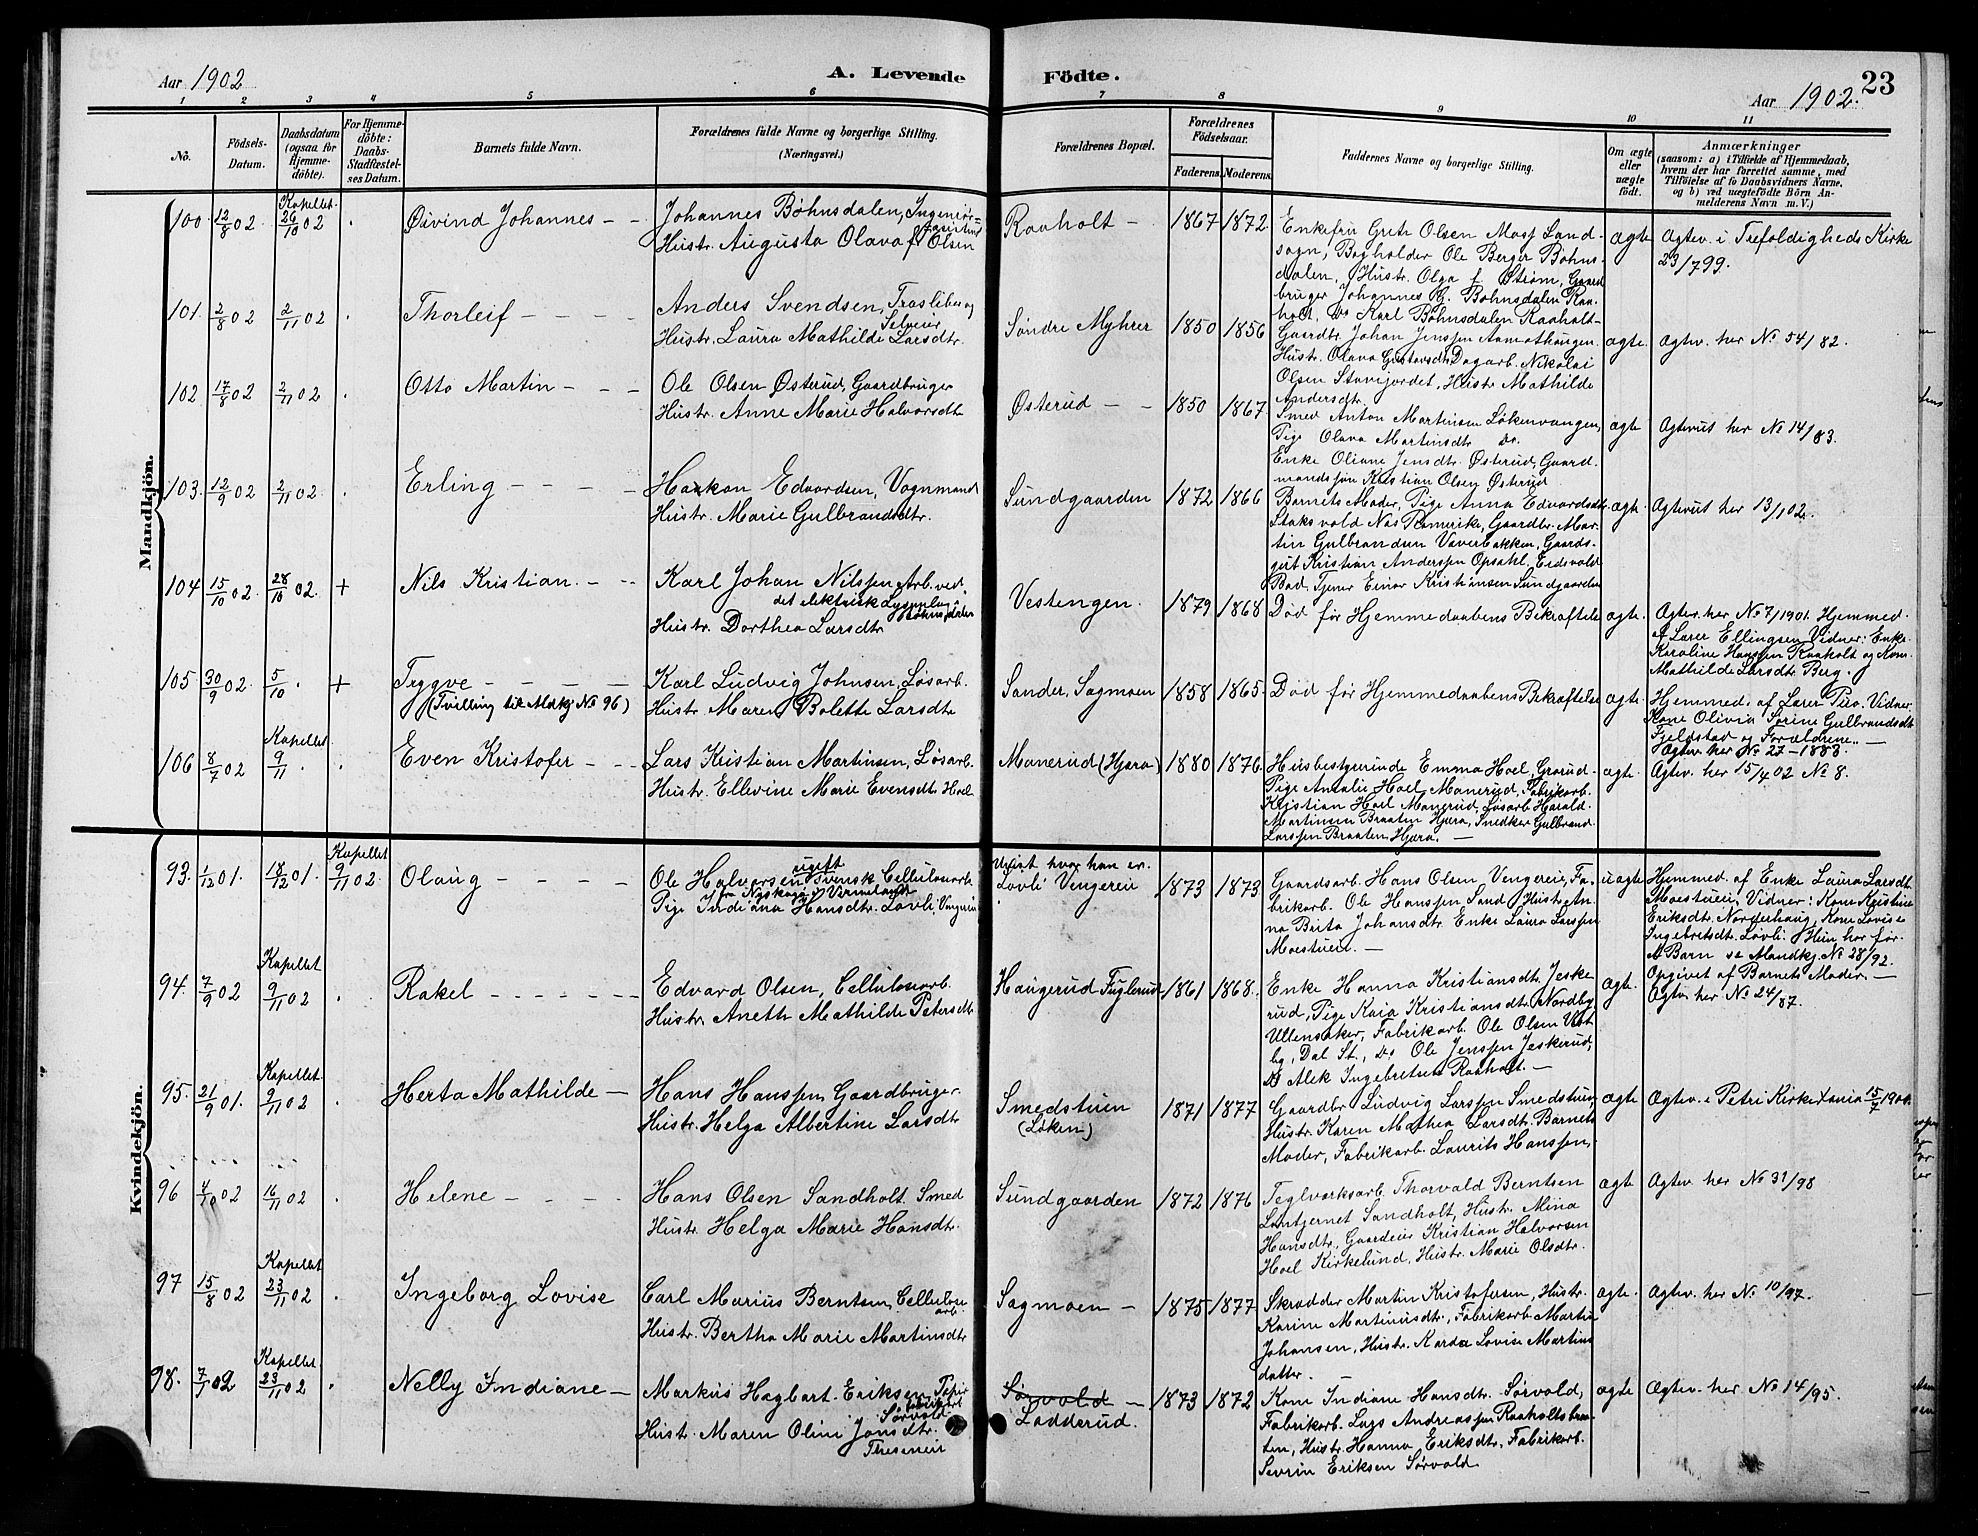 Aar 1902
A. Levende
Födte.
Aar 1902.
23
1 2 3 4 5 6 7 8 9 10 11
No.
Födsels-
Datum.
Daabsdatum
(ogsaa for
Hjemme-
döbte).
For Hjemme-
döbte:
Daabs-
Stadfæstel-
ses Datum.
Barnets fulde Navn.
Forældrenes fulde Navne og borgerlige Stilling.
(Næringsvei.)
Forældrenes Bopæl.
Forældrenes
Födselsaar.
Faderens. Moderens.
Faddernes Navne og borgerlige Stilling.
Om ægte
eller
uægte
födt.
Anmærkninger
(saasom: a) i Tilfælde af Hjemmedaab,
hvem der har forrettet samme, med
Tilföielse af to Daabsvidners Navne,
og b) ved uegtefödte Börn An-
melderens Navn m. V.)
Mandkjön.
100 12/8 02 Kapellet 26/10 02
Øivind Johannes
Johannes Bøhnsdalen, Ingeniør-
Hustr. Augusta Olava f. Olsen
Raaholt
1867 1872
Enkefru Grete Olsen Moss Land-
sogn, Bogholder Ole Berger Bøhns-
dalen, Hustr. Olga f. Strøm, Gaard
bruger Johannes B. Bøhnsdalen Raa-
holt, Do Karl Bøhnsdalen Raaholt
ægte
Ægtev. i Trefoldigheds Kirke
23/7 99.
101. 2/8 02 2/11 02
Thorleif
Anders Svendsen, Træsliber og
Selveier
Hustr. Laura Mathilde Larsdtr.
Søndre Myhrer
1850 1856
Gaardtr. Johan Jenssen Aamothaugen
Hustr. Olava Gustavsdtr Dagarb. Nikolai
Olsen Stavijordet, Hustr. Mathilde
Andersdtr.
ægte.
Ægtev. her No 54/82.
102 17/8 02 2/11 02
Otto Martin
Ole Olsen Østerud, Gaardbruger
Hustr. Anne Marie Halvorsdtr
Østerud
1850 1867
Smed Anton Martinsen Løkenvangen,
Pige Olava Martinsdtr Do.
Enke Oliane Jensdtr. Østerud, Gaard-
mandssøn Kristian Olsen Østerud
ægte
Ægteviet her No 14/83.
103. 12/9 02 2/11 02.
Erling
Haakon Edvardsen, Vognmand
Hustr. Marie Gulbrandsdtr.
Sundgaarden
1872 1866
Barnets Moder, Pige Anna Edvardsdtr
Staksvold Næs Romerike, Gaardbr. Mar-
tin Gulbrandsen Væverbakken, Gaards-
gut Kristian Anderssen Opsahl, Eidsvold
Bad, Tjener Einar Kristiansen Sundgaarden
ægte.
Ægteviet her 13/1 02.
104 15/10 02. 28/10 02. +
Nils Kristian.
Karl Johan Nilssen Arb. ved
det elektrisk Lysanlæg
Hustr. Dorthea Larsdtr
Vestengen.
1879 1868
Død før Hjemmedaabens Bekræftelse
ægte.
Ægtev. her No 7/1901. Hjemmed.
af Lærer Ellingsen, Vidner: Enke
Karoline Hanssen Raaholt og Kone
Mathilde Larsdtr. Berg.
105 30/9 02. 5/10 +
Tryggve
(Tvilling til Mdkj No 96)
Karl Ludvig Johnsen, Løsarb.
Hustr. Maren Bolette Larsdtr
Sander, Sagmoen
1858 1865.
Død før Hjemmedaabens Bekræftelse
ægte.
Hjemmed. af Lærer Vidner:
Kone Olivia Sørine Gulbrandsdtr
Fjeldstad og Forældrene.
Ægtev. her No 27-1883.
106 8/7 02 Kapellet 9/11
Even Kristofer
Lars Kristian Martinsen, Løsarb.
Hustr. Ellevine Marie Evensdtr Hoel
Manerud (Hjæra)
1880 1876.
Husbestyrerinde Emma Hoel, Grorud
Pige Amalie Hoel Manerud, Fabrikarb.
Kristian Hoel Manerud, Løsarb. Harald
Martinsen Braaten Hjæra, Snedker Gulbrand
Larssen Braaten Hjæra.
ægte.
Ægtev. her 15/4 02 No 8.
Kvindekjön.
93. 1/12 01. 18/12 01. Kapellet 9/11 02.
Olaug
ugift
Ole Halvorsen, svensk Cellulosearb.
Pige Indiana Hansdtr. Løvli, Vengereie
Uvist hvor han er.
Løvli Vengereie
1873 1873
Gaardsarb. Hans Olsen Vengereie, Fa-
brikarb. Ole Hanssen Sand, Hustr. An-
na Brita Johansdtr. Enke Laura Larssen
Moestuen.
uægte
Hjemmed. af Enke Laura Larsdtr.
Moestuen, Vidner: Kone Kristine
Eriksdtr. Norderhaug, Kone Lovise
Ingebretsdtr. Løvli. Hun har før
et Barn se Mandkj. No 28/92.
Opgivet af Barnets Moder.
94. 7/9 02 Kapellet 9/11 02
Rakel
Edvard Olsen, Cellulosearb.
Hustr. Aneth Mathilde Petersdtr
Haugerud Fuglerud
1861 1868.
Enke Hanna Kristiansdtr. Jeske-
rud, Pige Kaia Kristiansdtr. Nordby
Ullensaker, Fabrikarb. Ole Olsen Vest-
by, Dal St., Do Ole Jenssen Jeskerud,
Do Alek Ingebretsen Raaholt.
ægte.
Ægtev. her No 24/87.
95. 21/9 01. Kapellet 9/11 02
Herta Mathilde
Hans Hanssen, Gaardbruger
Hustr. Helga Albertine Larsdtr
Smedstuen
(Løken)
1871 1877
Gaardbr. Ludvig Larssen Smedstuen,
Hustr. Karen Mathea Larsdtr. Barnets
Moder, Fabrikarb. Laurits Hanssen.
ægte
Ægtev. i Petri Kirke Xania 15/7 190
96 4/10 02 16/11 02
Helene
Hans Olsen Sandholt, Smed
Hustr. Helga Marie Hansdtr.
Sundgaarden
1872 1876
Teglværksarb. Thorvald Berntsen
Sandholt, Hustr. Mina
Hansdtr., Gaardeier Kristian Halvorsen
Hoel Kirkelund, Hustr. Marie Olsdtr.
ægte
Ægtev. her No 31/98
97 15/8 02 Kapellet 23/11 02
Ingeborg Lovise
Carl Marius Berntsen, Cellulose
arb.
Hustr. Bertha Marie Martinsdtr
Sagmoen
1875 1877
Skrædder Martin Kristofersen, Hustr.
Karine Martinusdtr., Fabrikarb. Martin
Johansen, Hustr. Karda Lovise Martins
datter.
ægte.
Ægtev. her No 10/97.
98. 7/7 02 Kapellet 23/11 02
Nelly Indiane
Markus Hagbart Eriksen, Papir
Sørvold
Hustr. Maren Olini Jonsdtr.
Sørvold
Ladderud.
1873 1872
Kone Indiane Hansdtr. Sørvold,
Fabrikarb. Lars Andreassen Raaholtbraa-
ten, Hustr. Hanna Eriksdtr., Fabrikarb.
Sevrin Eriksen Sørvold
ægte
Ægtev. her No 14/95.